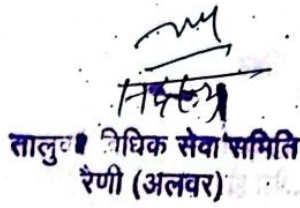 तालुका विधिक सेवा समिति
रैणी (अलवर)